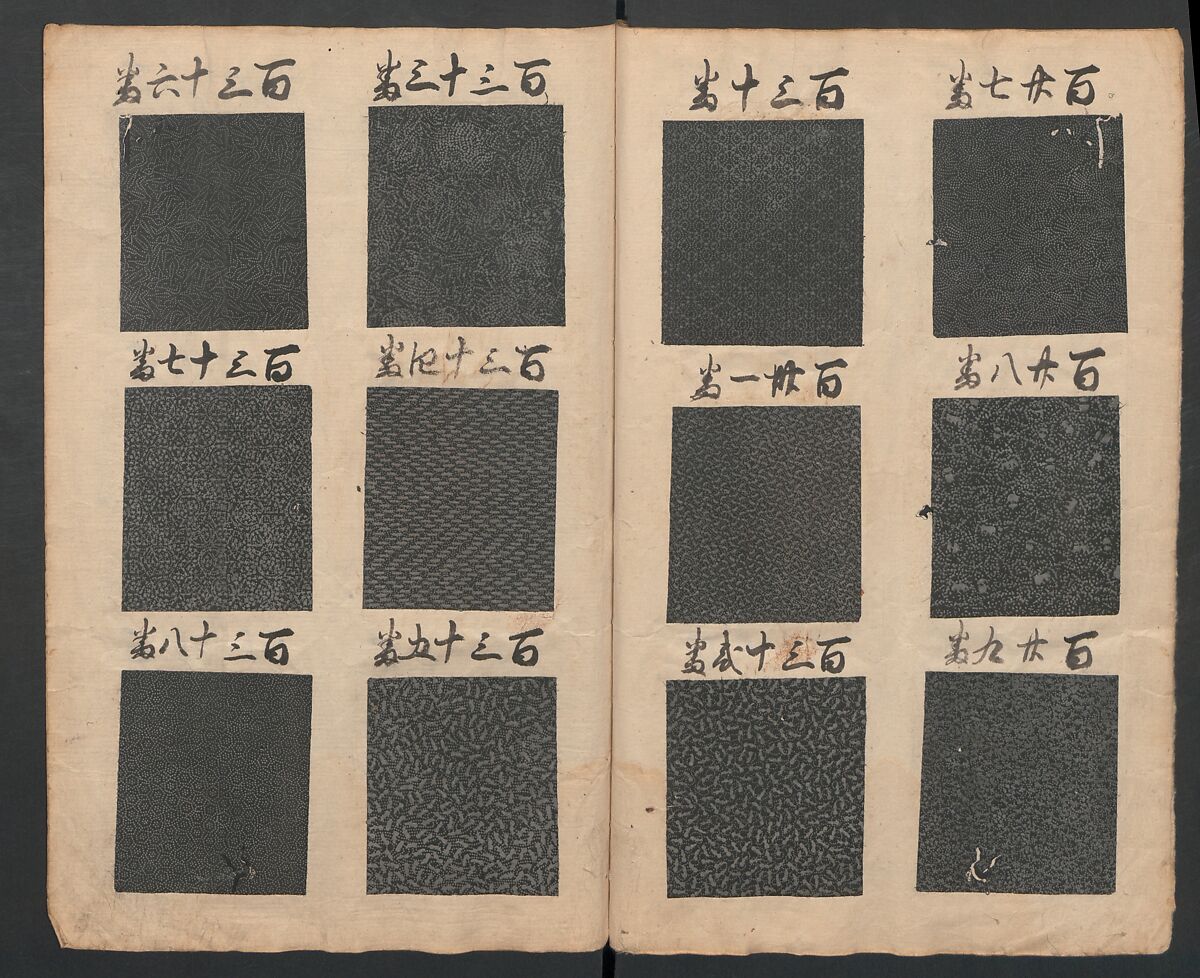 百廿七番
百廿八番
百廿九番
百三十番
百卅一番
百三十弐番
百三十三番
百三十四番
百三十五番
百三十六番
百三十七番
百三十八番